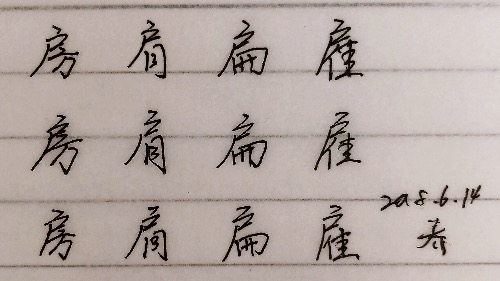 房 肩 扁 雇
房 肩 扁 雇
2018.6.14
房 肩 扁 雇